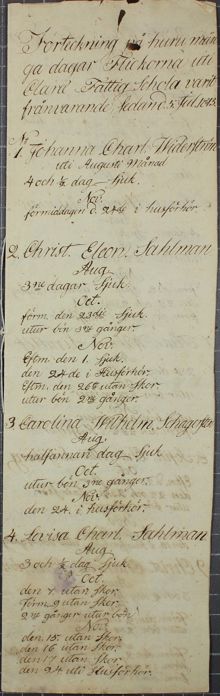 Förteckning på huru mån
ga dagar Flickorna uti
Clara Fattig Schola varit
frånvarande sedan d. 5 Juli 1813
No 1. Johanna Charl. Widerström
uti Augusti Månad
4 och ½ dag Sjuk
Nov.
förmiddagen d. 24de i husförhör.
2. Christ. Eleon. Sahlman
Aug
3ne dagar Sjuk
Oct.
förm. den 23dje Sjuk
utur bön 3ne gånger.
Nov.
Eftm. den 1. Sjuk.
den 24 de i Husförhör.
Eftm. den 26te utan Skor.
utur bön 2ne gånger.
3 Carolina Wilhelm.
Aug.
halfannan dag Sjuk
Oct.
utur bön 3ne gånger.
Nov.
den 24. i husförhör.
4. Lovisa Charl. Sahlman
Aug
3 och ½ dag Sjuk
Oct.
den 7 utan Skor.
Förm. 9 utan Skor.
2ne gånger utur bön
Nov.
den 15. utan Skor.
den 16 utan Skor.
den 17 utan Skor
den 24 uti Husförhör.